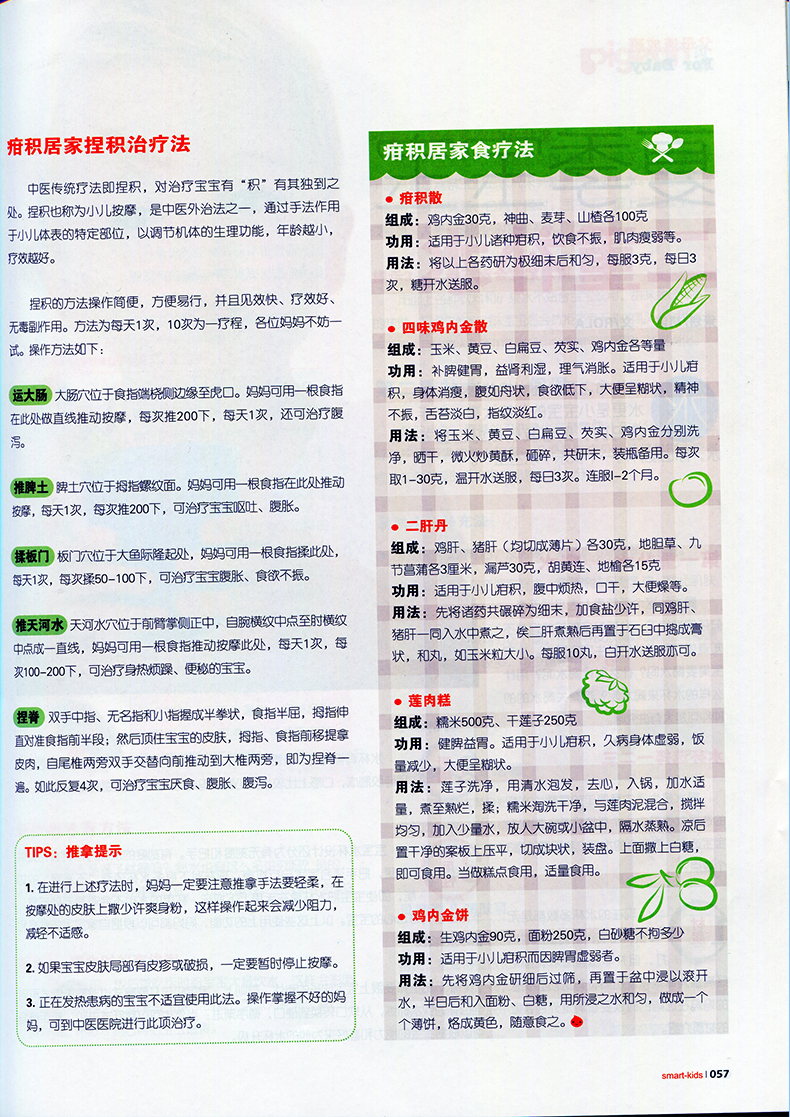 疳积居家捏积治疗法
中医传统疗法即捏积，对治疗宝宝有“积”有其独到之
处。捏积也称为小儿按摩，是中医外治法之一，通过手法作用
于小儿体表的特定部位，以调节机体的生理功能，年龄越小，
疗效越好。
捏积的方法操作简便，方便易行，并且见效快、疗效好、
无毒副作用。方法为每天1次，10次为一疗程，各位妈妈不妨一
试。操作方法如下：
运大肠 大肠穴位于食指端桡侧边缘至虎口。妈妈可用一根食指
在此处做直线推动按摩，每次推200下，每天1次，还可治疗腹
泻。
推脾土 脾土穴位于拇指螺纹面。妈妈可用一根食指在此处推动
按摩，每天1次，每次推200下，可治疗宝宝呕吐、腹胀。
揉板门 板门穴位于大鱼际隆起处，妈妈可用一根食指揉此处，
每天1次，每次揉50-100下，可治疗宝宝腹胀、食欲不振。
推天河水 天河水穴位于前臂掌侧正中，自腕横纹中点至肘横纹
中点成一直线，妈妈可用一根食指推动按摩此处，每天1次，每
次100-200下，可治疗身热烦躁、便秘的宝宝。
捏脊 双手中指、无名指和小指握成半拳状，食指半屈，拇指伸
直对准食指前半段；然后顶住宝宝的皮肤，拇指、食指前移提拿
皮肉，自尾椎两旁双手交替向前推动到大椎两旁，即为捏脊一
遍。如此反复4次，可治疗宝宝厌食、腹胀、腹泻。
TIPS：推拿提示
1. 在进行上述疗法时，妈妈一定要注意推拿手法要轻柔，在
按摩处的皮肤上撒少许爽身粉，这样操作起来会减少阻力，
减轻不适感。
2. 如果宝宝皮肤局部有皮疹或破损，一定要暂时停止按摩。
3. 正在发热患病的宝宝不适宜使用此法。操作掌握不好的妈
妈，可到中医医院进行此项治疗。
疳积居家食疗法
● 疳积散
组成：鸡内金30克，神曲、麦芽、山楂各100克
功用：适用于小儿诸种疳积，饮食不振，肌肉瘦弱等。
用法：将以上各药研为极细末后和匀，每服3克，每日3
次，糖开水送服。
● 四味鸡内金散
组成：玉米、黄豆、白扁豆、芡实、鸡内金各等量
功用：补脾健胃，益肾利湿，理气消胀。适用于小儿疳
积，身体消瘦，腹如舟状，食欲低下，大便呈糊状，精神
不振，舌苔淡白，指纹淡红。
用法：将玉米、黄豆、白扁豆、芡实、鸡内金分别洗
净，晒干，微火炒黄酥，砸碎，共研末，装瓶备用。每次
取1-30克，温开水送服，每日3次。连服l-2个月。
● 二肝丹
组成：鸡肝、猪肝（均切成薄片）各30克，地胆草、九
节菖蒲各3厘米，漏芦30克，胡黄连、地榆各15克
功用：适用于小儿疳积，腹中烦热，口干，大便燥等。
用法：先将诸药共碾碎为细末，加食盐少许，同鸡肝、
猪肝一同入水中煮之，俟二肝煮熟后再置于石臼中捣成膏
状，和丸，如玉米粒大小。每服10丸，白开水送服亦可。
● 莲肉糕
组成：糯米500克、干莲子250克
功用：健脾益胃。适用于小儿疳积，久病身体虚弱，饭
量减少，大便呈糊状。
用法：莲子洗净，用清水泡发，去心，入锅，加水适
量，煮至熟烂，揉；糯米淘洗干净，与莲肉泥混合，搅拌
均匀，加入少量水，放人大碗或小盆中，隔水蒸熟。凉后
置干净的案板上压平，切成块状，装盘。上面撒上白糖，
即可食用。当做糕点食用，适量食用。
● 鸡内金饼
组成：生鸡内金90克，面粉250克，白砂糖不拘多少
功用：适用于小儿疳积而因脾胃虚弱者。
用法：先将鸡内金研细后过筛，再置于盆中浸以滚开
水，半日后和入面粉、白糖，用所浸之水和匀，做成一个
个薄饼，烙成黄色，随意食之。
smart-kids | 057